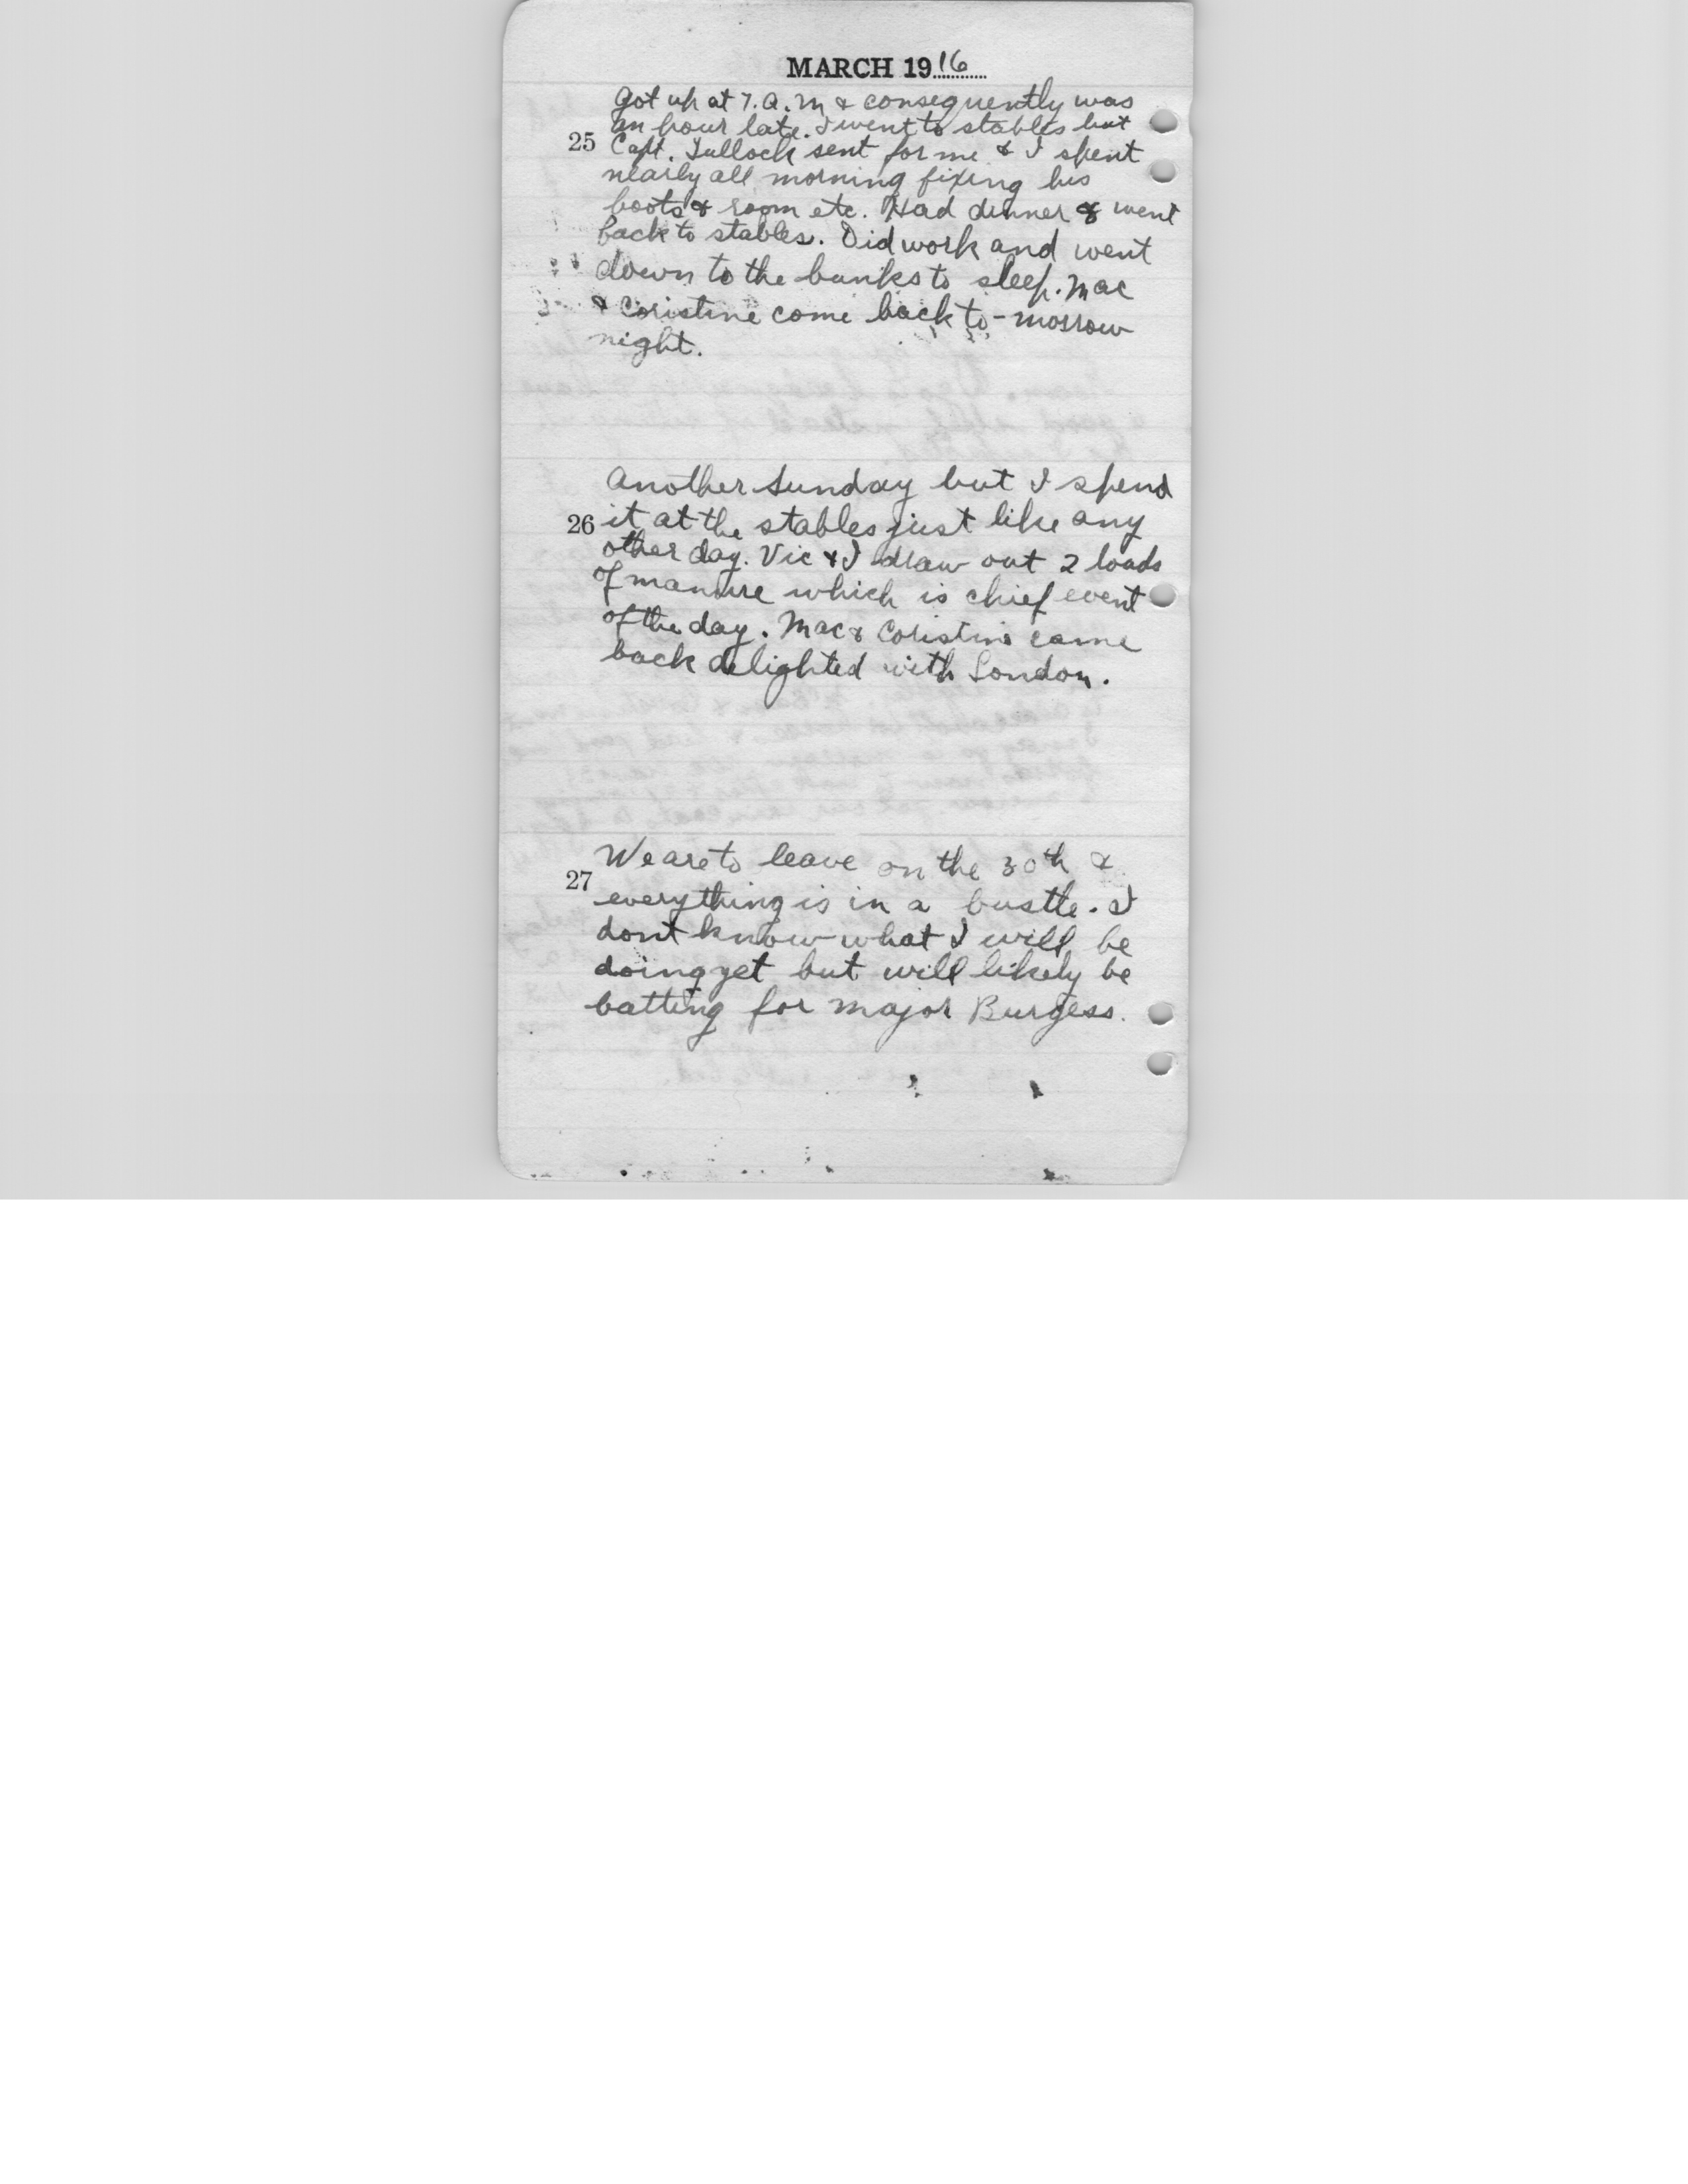 MARCH 1916
Got up at 7. A. M & consequently was
an hour late. I went to stables but
25 Capt. Tullock sent for me & I spent
nearly all morning fixing his
boots & room etc. Had dinner & went
back to stables. Did work and went
down to the bunks to sleep. Mac
& Coristine come back to-morrow
night.
Another Sunday but I spend
26 it at the stables just like any
other day. Vic & I draw out 2 loads
of manure which is chief event
of the day. Mac & Coristine came
back delighted with London.
We are to leave on the 30th &
27
everything is in a bustle. I
dont know what I will be
doing yet but will likely be
batting for Major Burgess.